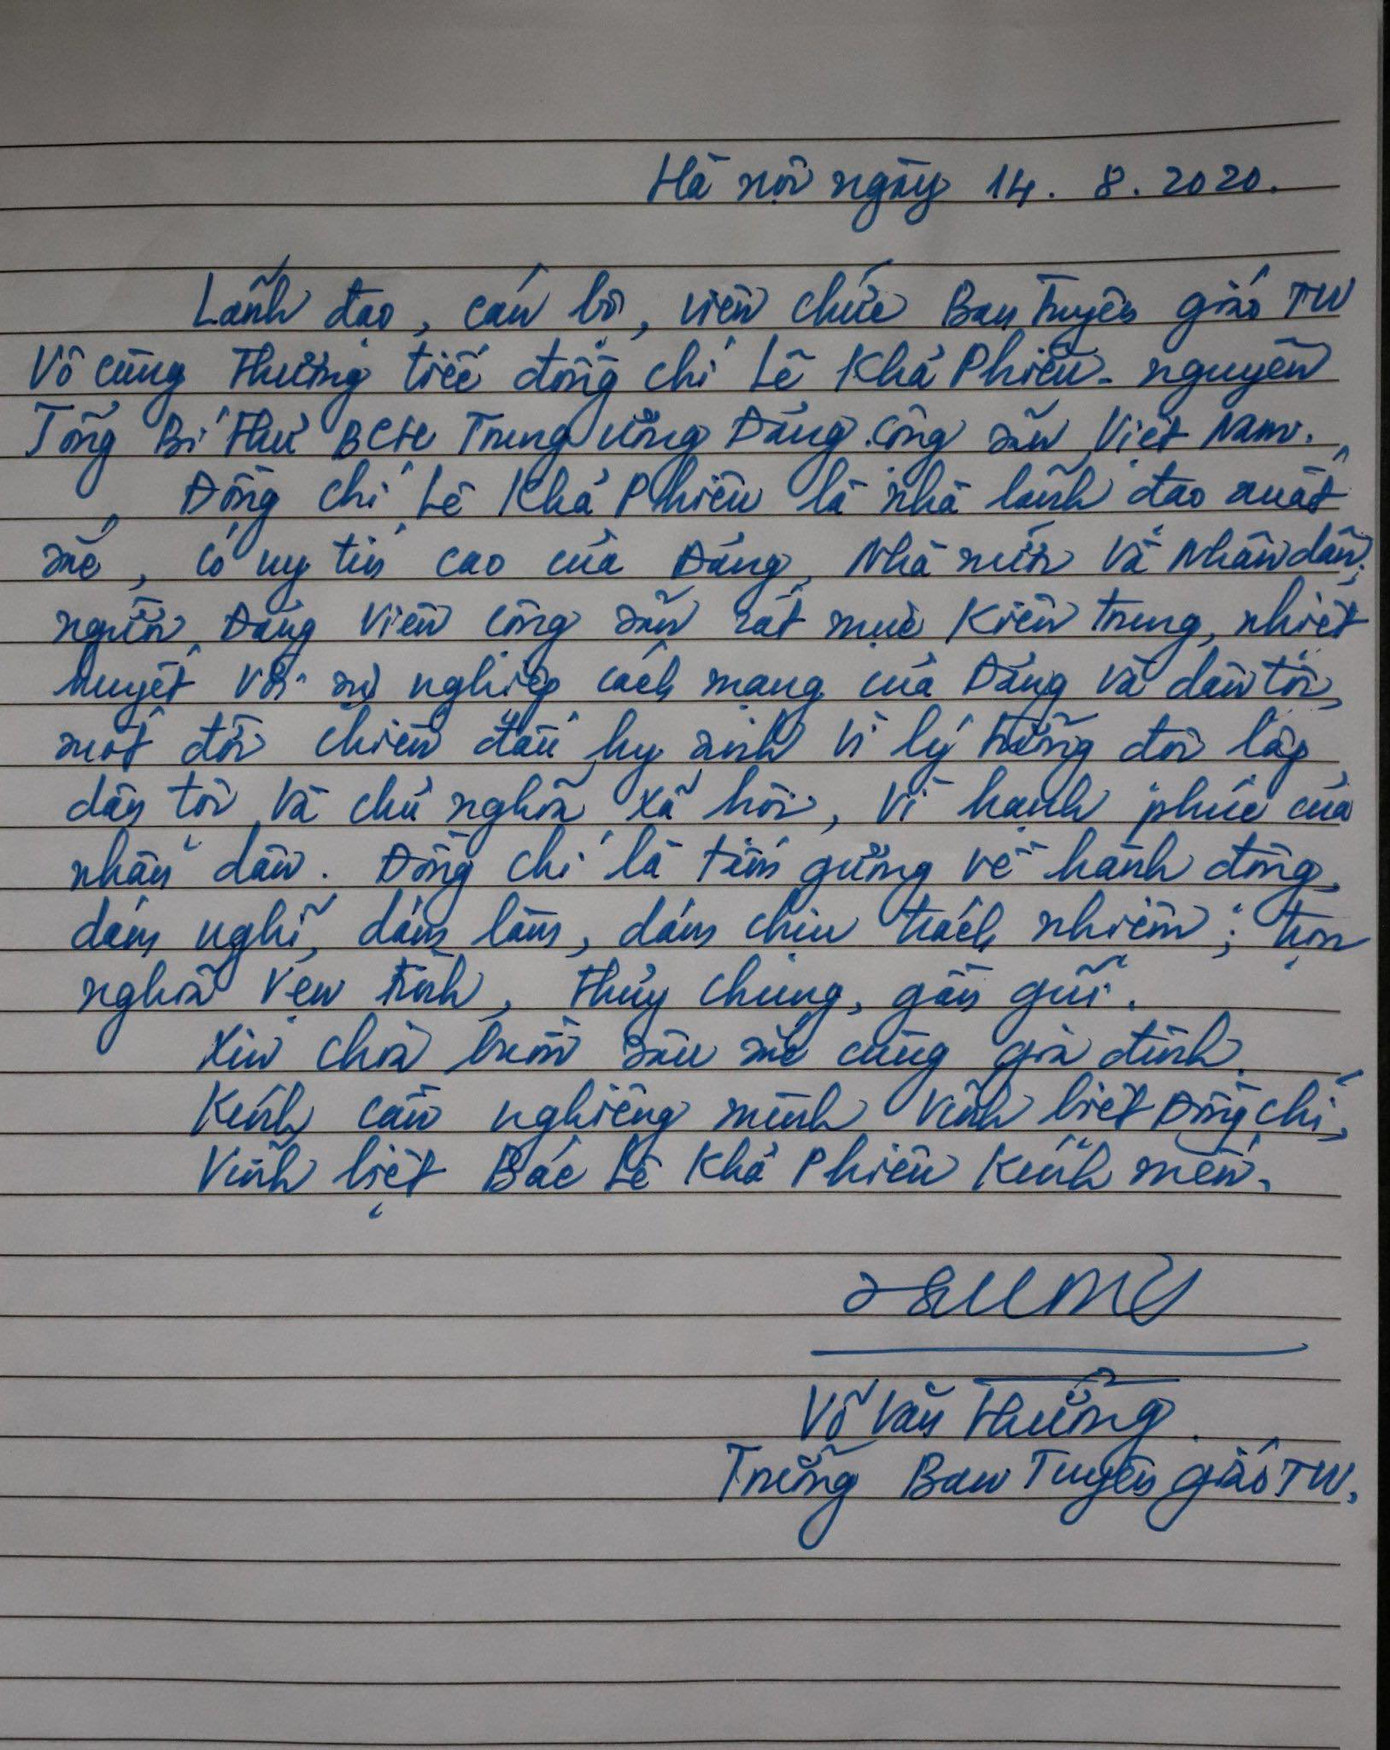 Hà nội ngày 14.8.2020.
Lãnh đạo, cán bộ, viên chức Ban Tuyên giáo TW
Vô cùng thương tiếc đồng chí Lê Khả Phiêu - nguyên
Tổng Bí thư BCH Trung ương Đảng Cộng sản Việt Nam.
Đồng chí Lê Khả Phiêu là nhà lãnh đạo xuất
sắc, có uy tín cao của Đảng, Nhà nước và Nhân dân;
người Đảng viên cộng sản rất mực kiên trung, nhiệt
huyết với sự nghiệp cách mạng của Đảng và dân tộc,
một đời chiến đấu hy sinh vì lý tưởng độc lập
dân tộc và chủ nghĩa xã hội, vì hạnh phúc của
nhân dân. Đồng chí là tấm gương về hành động,
dám nghĩ, dám làm, dám chịu trách nhiệm; trọn
nghĩa vẹn tình, thủy chung, gần gũi.
Xin chia buồn sâu sắc cùng gia đình.
Kính cẩn nghiêng mình vĩnh biệt Đồng chí,
Vĩnh biệt Bác Lê Khả Phiêu kính mến.
Võ Văn Thưởng
Trưởng Ban Tuyên giáo TW.